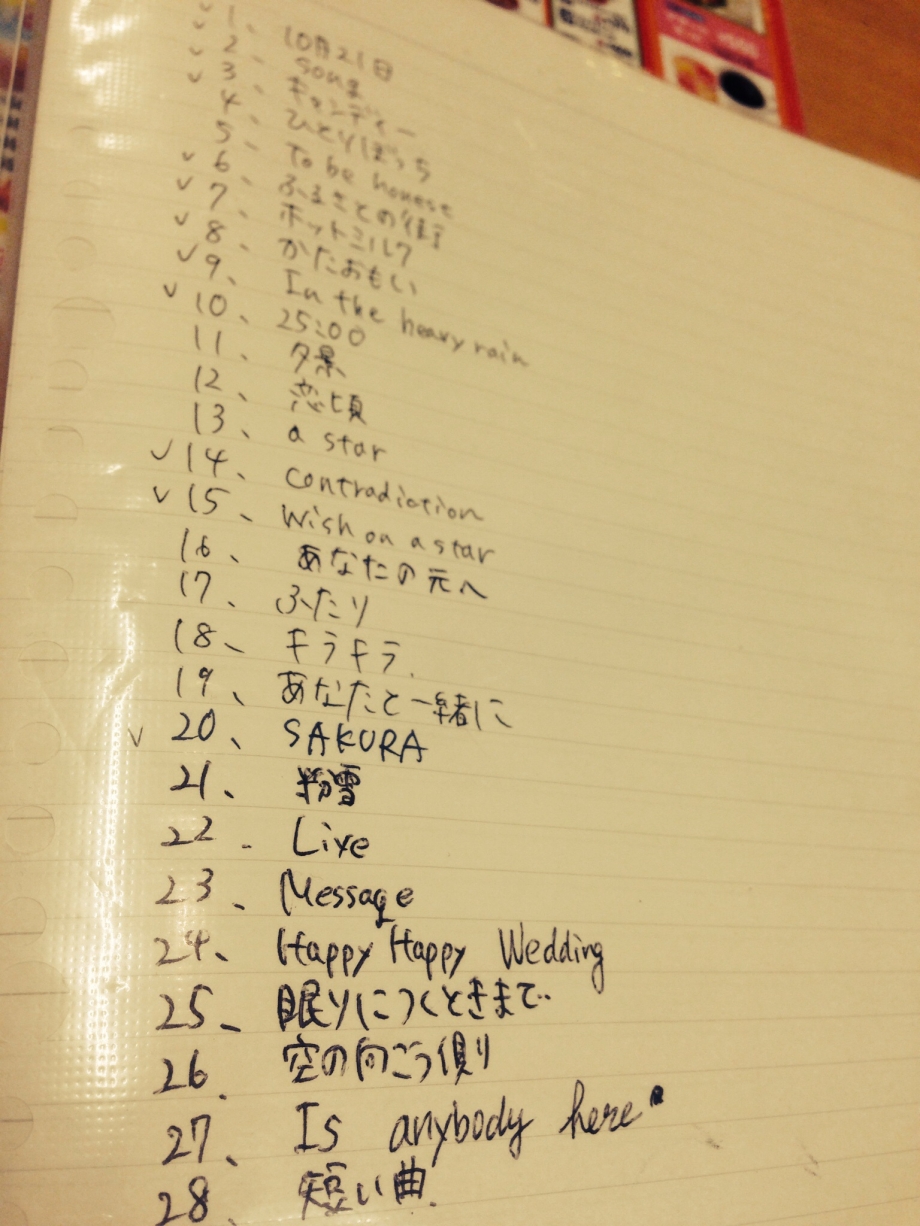 ✓ 1、 10月21日
✓ 2、 song
✓ 3、 キャンディー
✓ 4 ひとりぼっち
5、 To be honest
✓ 6、 ふるさとの街
✓ 7、 ホットミルク
✓ 8、 かたおもい
✓ 9、 In the heavy rain
✓ 10、 25:00
11、 夕景
12、 恋頃
13、 a star
✓ 14、 contradiction
✓ 15、 Wish on a star
16、 あなたの元へ
17、 ふたり
18、 キラキラ
19、 あなたと一緒に
✓ 20、 SAKURA
21、 粉雪
22 Live
23、 Message
24、 Happy Happy Wedding
25、 眠りにつくときまで
26、 空の向こう側り
27、 Is anybody here
28、 短い曲